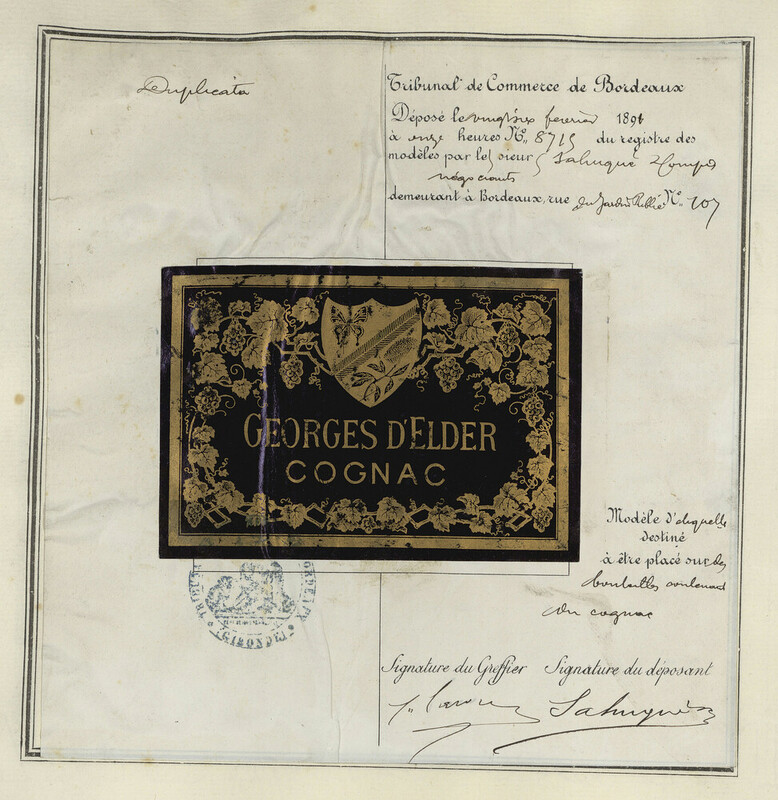 Duplicata
Tribunal de Commerce de Bordeaux
Déposé le vingt six fevrier 1891
à onze heures N° 8715 du registre des
modèles par le sieur Sahuqué
négociants
demeurant à Bordeaux, rue du Jardin Public N° 107
GEORGES D'ELDER
COGNAC
Modèle d'etiquette
destiné
à être placé sur des
bouteilles contenant
du cognac
GIRONDE
Signature du Greffier Signature du déposant
Sahuqué